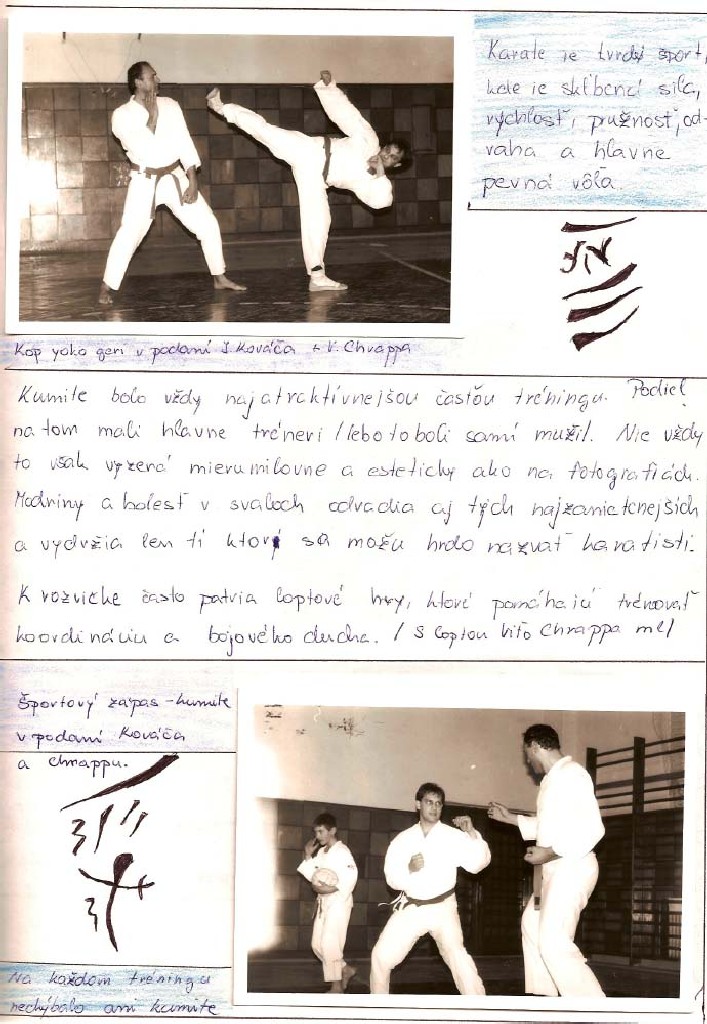 Karate je tvrdý šport,
kde je skĺbená sila,
rýchlosť, pružnosť, od-
vaha a hlavne
pevná vôľa.
Kop yoko geri v podaní J. Kováča + V. Chrappa
Kumite bolo vždy najatraktívnejšou časťou tréningu. Podiel
na tom mali hlavne tréneri /lebo to boli samí muži/. Nie vždy
to však vyzerá mierumilovne a esteticky ako na fotografiách.
Modriny a bolesť v svaloch odradia aj tých najzanietenejších
a vydržia len tí ktorí sa možu hrdo nazvať karatisti.
K rozvičke často patria loptové hry, ktoré pomáhajú trénovať
koordináciu a bojového ducha. / S loptou Vito Chrappa ml/
Športový zápas - kumite
v podaní Kováča
a Chrappu.
Na každom tréningu
nechýbalo ani kumite